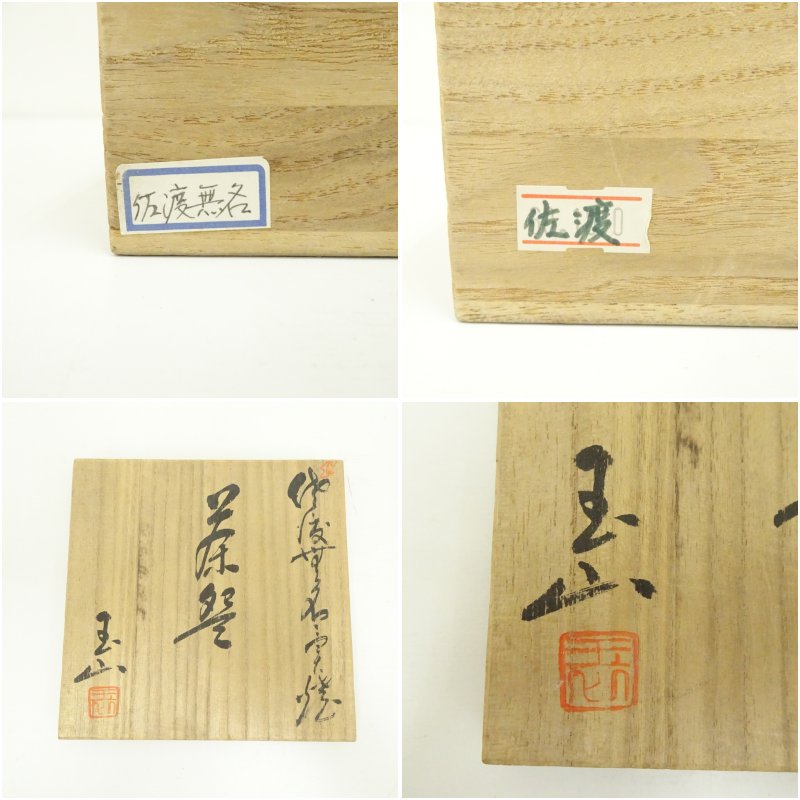 佐渡無名
佐渡
佐渡無名異焼
茶盌
玉山
玉山